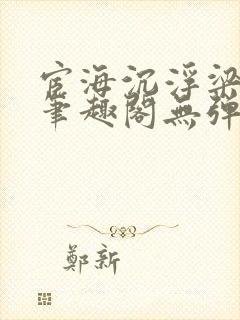 宦海沉浮梁
笔趣阁無彈
鄭新